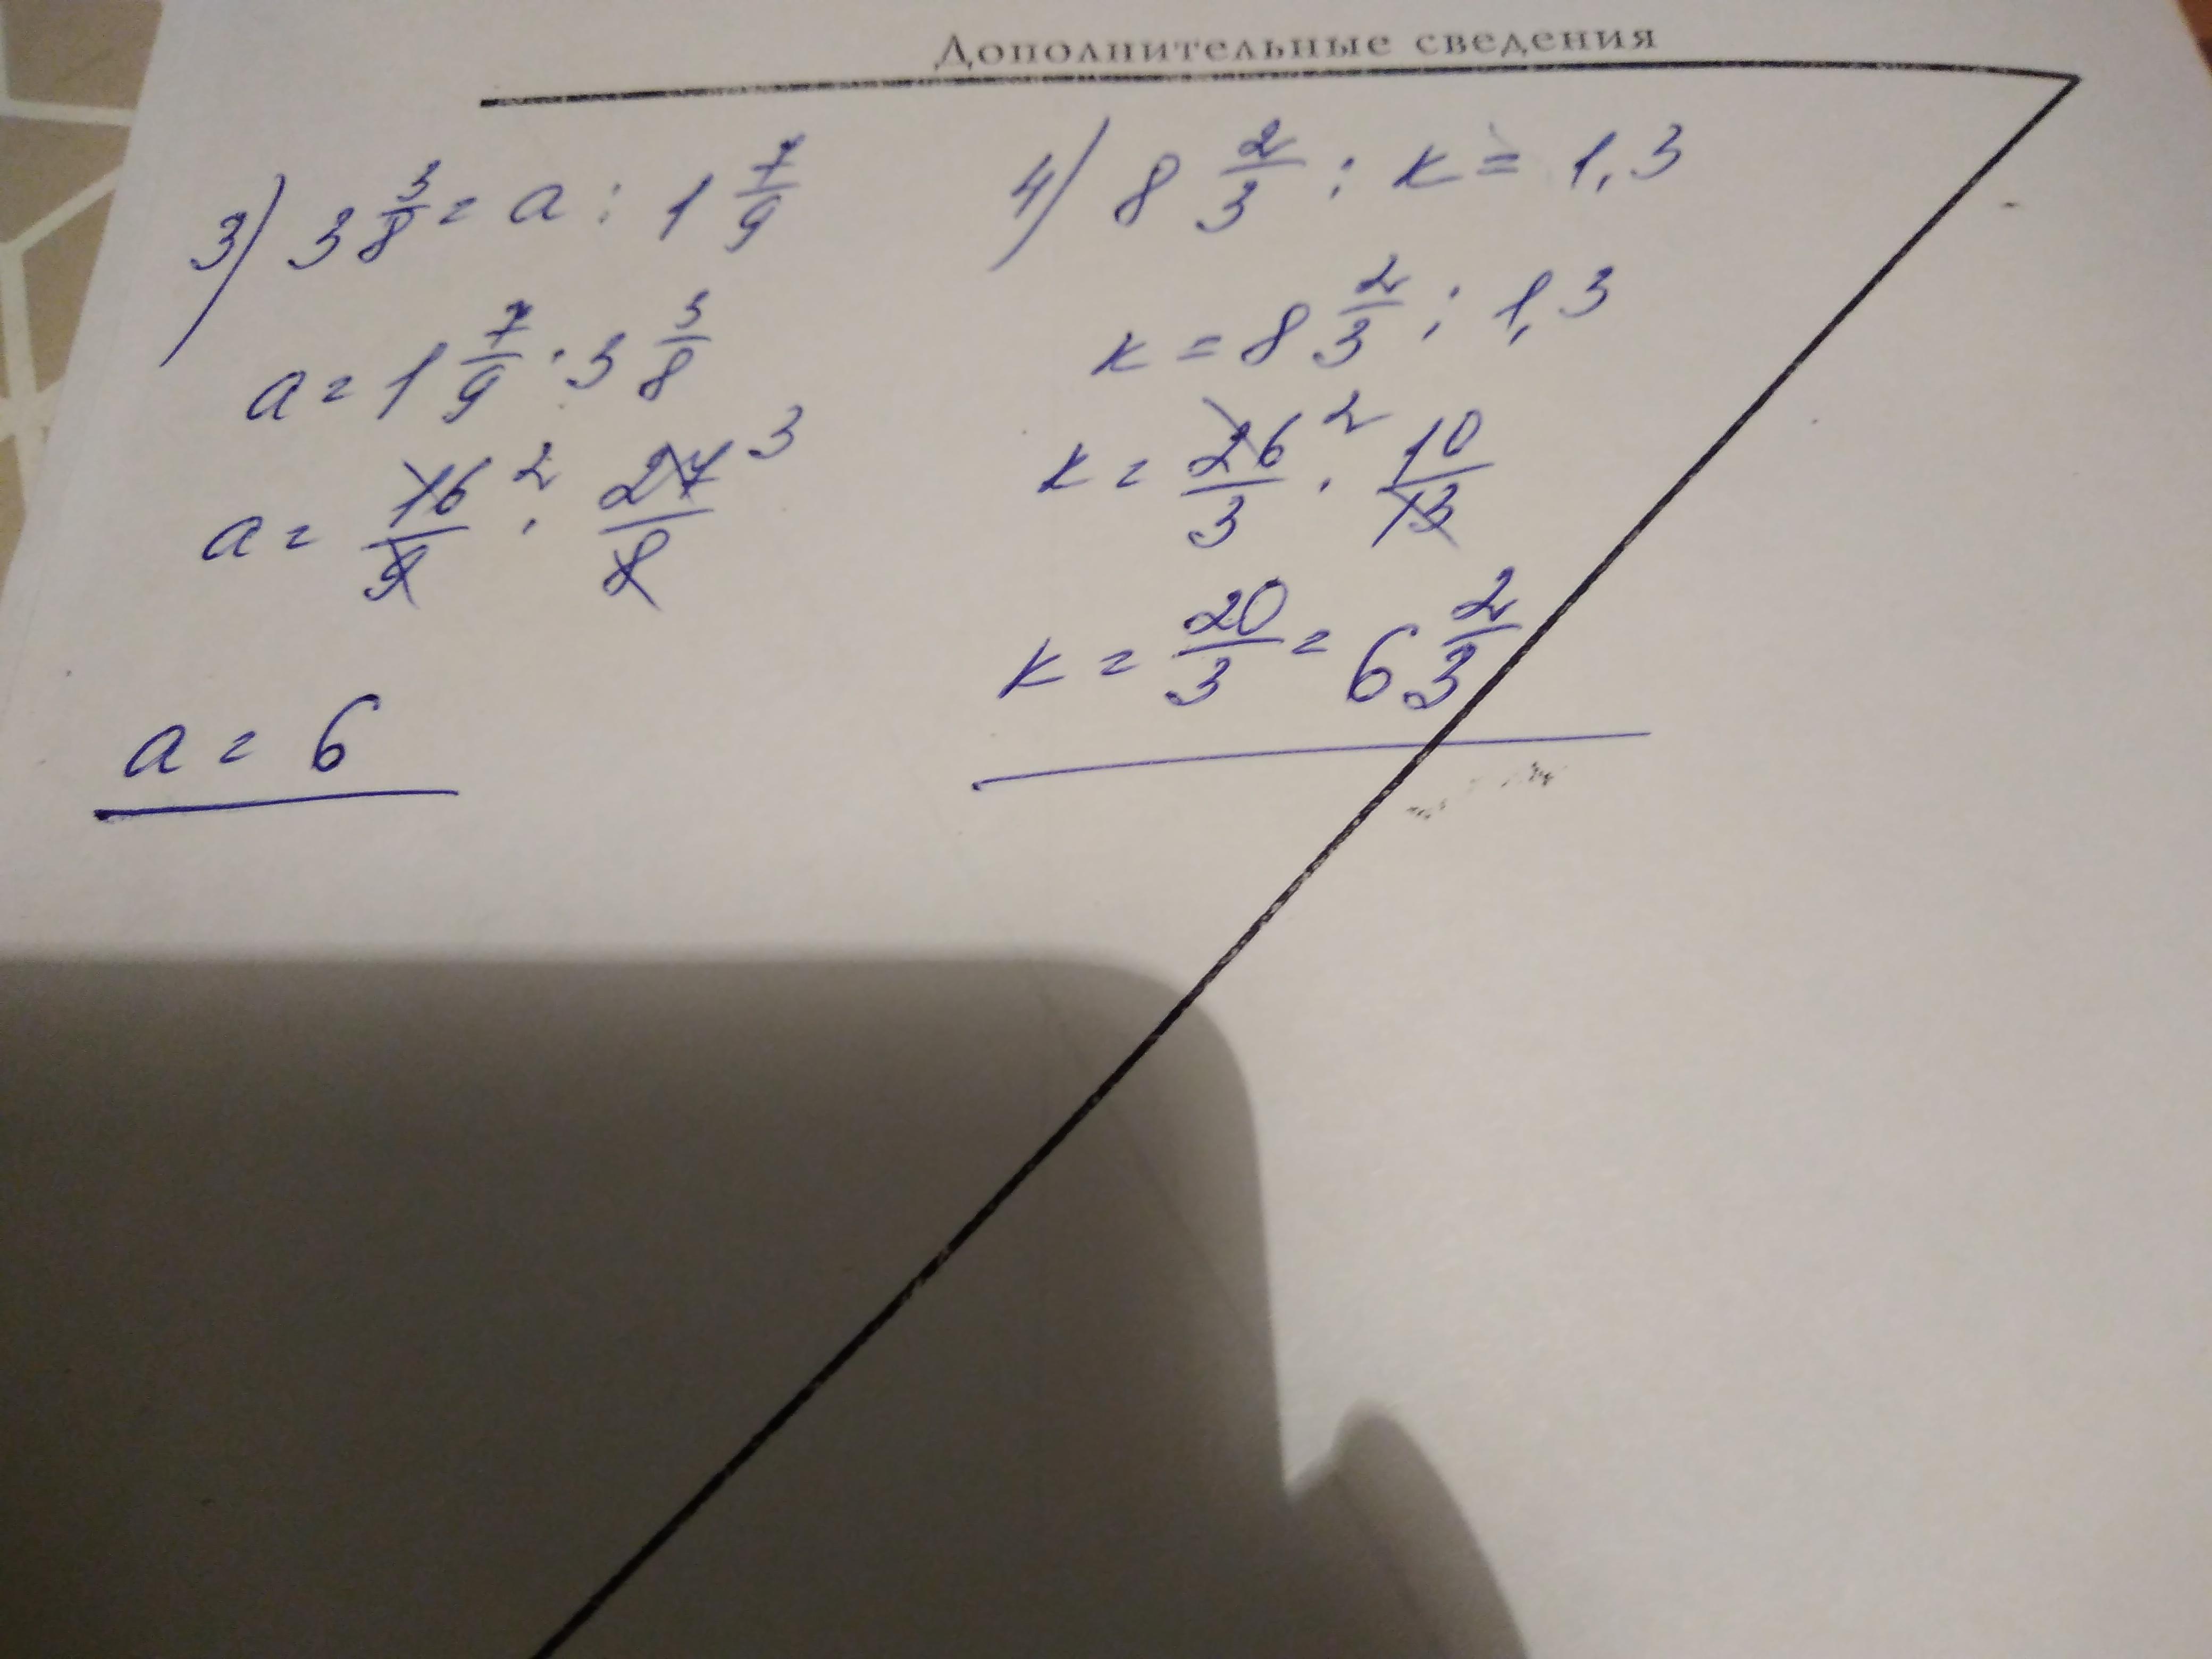 Дополнительные сведения
3) 3 3/8 = a : 1 7/9
a = 1 7/9 · 3 3/8
a = 16/9 2 · 27/8 3
a = 6
4) 8 2/3 : к = 1,3
к = 8 2/3 : 1,3
к = 26/3 2 · 10/13
к = 20/3 = 6 2/3